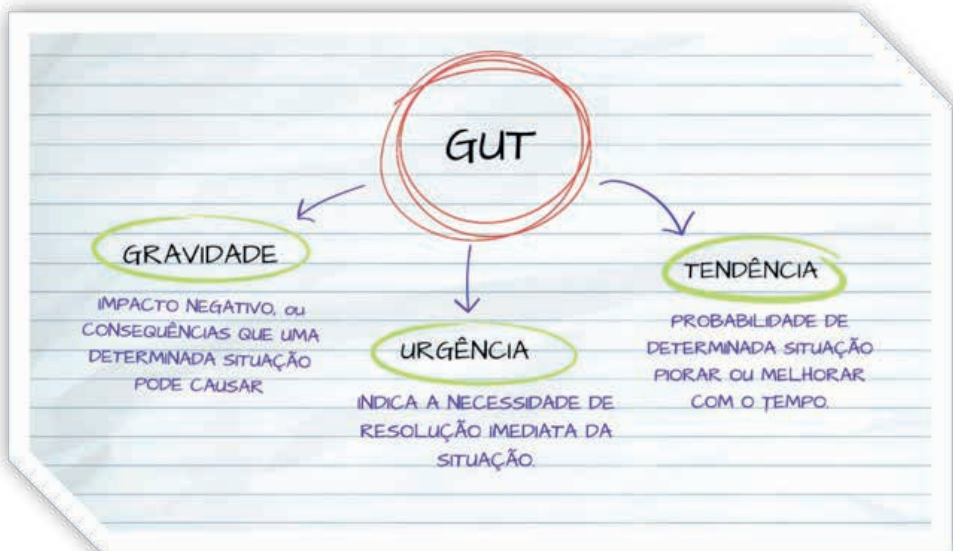 GUT
GRAVIDADE
IMPACTO NEGATIVO, ou
CONSEQUÊNCIAS QUE UMA
DETERMINADA SITUAÇÃO
PODE CAUSAR
URGÊNCIA
INDICA A NECESSIDADE DE
RESOLUÇÃO IMEDIATA DA
SITUAÇÃO.
TENDÊNCIA
PROBABILIDADE DE
DETERMINADA SITUAÇÃO
PIORAR OU MELHORAR
COM O TEMPO.